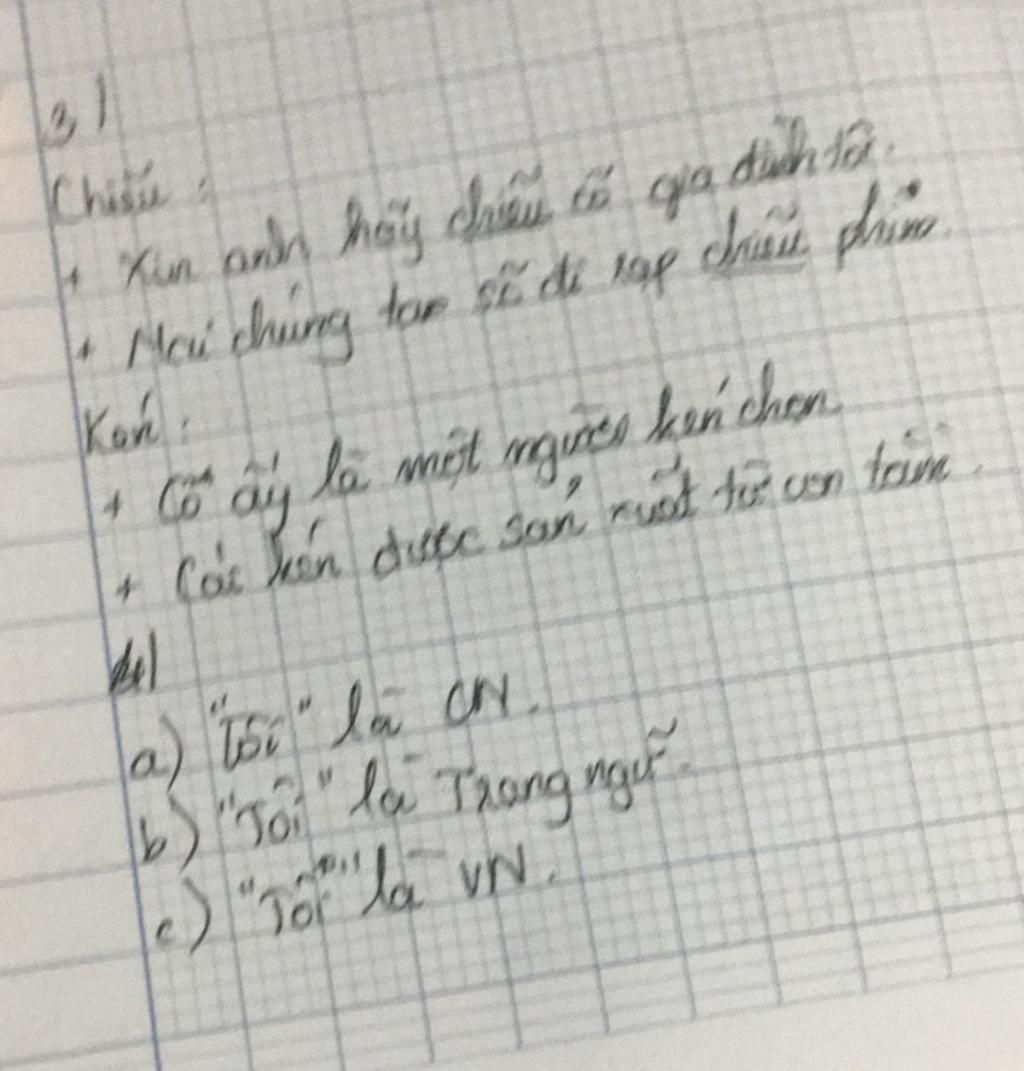 3)
Chiếu:
+ Xin anh hãy chiếu cố gia đình tôi.
+ Mai chúng ta sẽ đi rạp chiếu phim.
Kén:
+ Cô ấy là một người kén chọn
+ Cái kén được sản xuất từ con tằm.
4)
a) "Tôi" là CN.
b) "Tôi" là Trạng ngữ.
c) "Tôi" là VN.